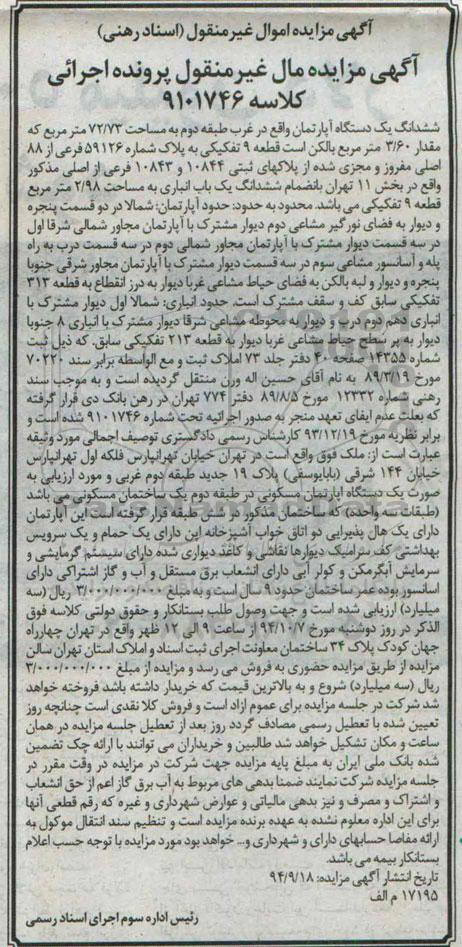 آگهی مزایده اموال غیرمنقول (اسناد رهنی)
آگهی مزایده مال غیرمنقول پرونده اجرائی
کلاسه ۹۱۰۱۷۴۶
ششدانگ یک دستگاه آپارتمان واقع در غرب طبقه دوم به مساحت ۷۲/۷۳ متر مربع که
مقدار ۳/۶۰ متر مربع بالکن است قطعه ۹ تفکیکی به پلاک شماره ۵۹۱۲۶ فرعی از ۸۸
اصلی مفروز و مجزی شده از پلاکهای ثبتی ۱۰۸۴۴ و ۱۰۸۴۳ فرعی از اصلی مذکور
واقع در بخش ۱۱ تهران بانضمام ششدانگ یک باب انباری به مساحت ۲/۹۸ متر مربع
قطعه ۹ تفکیکی می باشد. محدود به حدود: حدود آپارتمان: شمالا در دو قسمت پنجره
و دیوار به فضای نورگیر مشاعی دوم دیوار مشترک با آپارتمان مجاور شمالی شرقا اول
در سه قسمت دیوار مشترک با آپارتمان مجاور شمالی دوم در سه قسمت درب به راه
پله و آسانسور مشاعی سوم در سه قسمت دیوار مشترک با آپارتمان مجاور شرقی جنوبا
پنجره و دیوار و لبه بالکن به فضای حیاط مشاعی غربا دیوار به درز انقطاع به قطعه ۳۱۳
تفکیکی سابق کف و سقف مشترک است. حدود انباری: شمالا اول دیوار مشترک با
انباری دهم دوم درب و دیوار به محوطه مشاعی شرقا دیوار مشترک با انباری ۸ جنوبا
دیوار به پر سطح حیاط مشاعی غربا دیوار به قطعه ۲۱۳ تفکیکی سابق. که ذیل ثبت
شماره ۱۴۳۵۵ صفحه ۴۰ دفتر جلد ۷۳ املاک ثبت و مع الواسطه برابر سند ۷۰۲۲۰
مورخ ۸۹/۳/۱۹ به نام آقای حسین اله ورن منتقل گردیده است و به موجب سند
رهنی شماره ۱۲۳۳۲ مورخ ۸۹/۸/۵ دفتر ۷۷۴ تهران در رهن بانک دی قرار گرفته
که بعلت عدم ایفای تعهد منجر به صدور اجرائیه تحت شماره ۹۱۰۱۷۴۶ شده است و
برابر نظریه مورخ ۹۳/۱۲/۱۹ کارشناس رسمی دادگستری توصیف اجمالی مورد وثیقه
عبارت است از: ملک فوق واقع است در تهران خیابان تهرانپارس فلکه اول تهرانپارس
خیابان ۱۴۴ شرقی (بابایوسفی) پلاک ۱۹ جدید طبقه دوم غربی و مورد ارزیابی به
صورت یک دستگاه آپارتمان مسکونی در طبقه دوم یک ساختمان مسکونی می باشد
(طبقات سه واحده) که ساختمان مذکور در شش طبقه قرار گرفته است این آپارتمان
دارای یک هال پذیرایی دو اتاق خواب آشپزخانه این دارای یک حمام و یک سرویس
بهداشتی کف سرامیک دیوارها نقاشی و کاغذ دیواری شده دارای سیستم گرمایشی و
سرمایش آبگرمکن و کولر آبی دارای انشعاب برق مستقل و آب و گاز اشتراکی دارای
آسانسور بوده عمر ساختمان حدود ۹ سال است و به مبلغ ۳/۰۰۰/۰۰۰/۰۰۰ ریال (سه
میلیارد) ارزیابی شده است و جهت وصول طلب بستانکار و حقوق دولتی کلاسه فوق
الذکر در روز دوشنبه مورخ ۹۴/۱۰/۷ از ساعت ۹ الی ۱۲ ظهر واقع در تهران چهارراه
جهان کودک پلاک ۳۴ ساختمان معاونت اجرای ثبت اسناد و املاک استان تهران سالن
مزایده از طریق مزایده حضوری به فروش می رسد و مزایده از مبلغ ۳/۰۰۰/۰۰۰/۰۰۰
ریال (سه میلیارد) شروع و به بالاترین قیمت که خریدار داشته باشد فروخته خواهد
شد شرکت در جلسه مزایده برای عموم آزاد است و فروش کلا نقدی است چنانچه روز
تعیین شده با تعطیل رسمی مصادف گردد روز بعد از تعطیل جلسه مزایده در همان
ساعت و مکان تشکیل خواهد شد طالبین و خریداران می توانند با ارائه چک تضمین
شده بانک ملی ایران به مبلغ پایه مزایده جهت شرکت در مزایده در وقت مقرر در
جلسه مزایده شرکت نمایند ضمنا بدهی های مربوط به آب برق گاز اعم از حق انشعاب
و اشتراک و مصرف و نیز بدهی مالیاتی و عوارض شهرداری و غیره که رقم قطعی آنها
برای این اداره معلوم نشده به عهده برنده مزایده است و تنظیم سند انتقال موکول به
ارائه مفاصا حسابهای دارای و شهرداری و... خواهد بود مورد مزایده با توجه حسب اعلام
بستانکار بیمه می باشد.
تاریخ انتشار آگهی مزایده: ۹۴/۹/۱۸
۱۷۱۹۵ م الف
رئیس اداره سوم اجرای اسناد رسمی